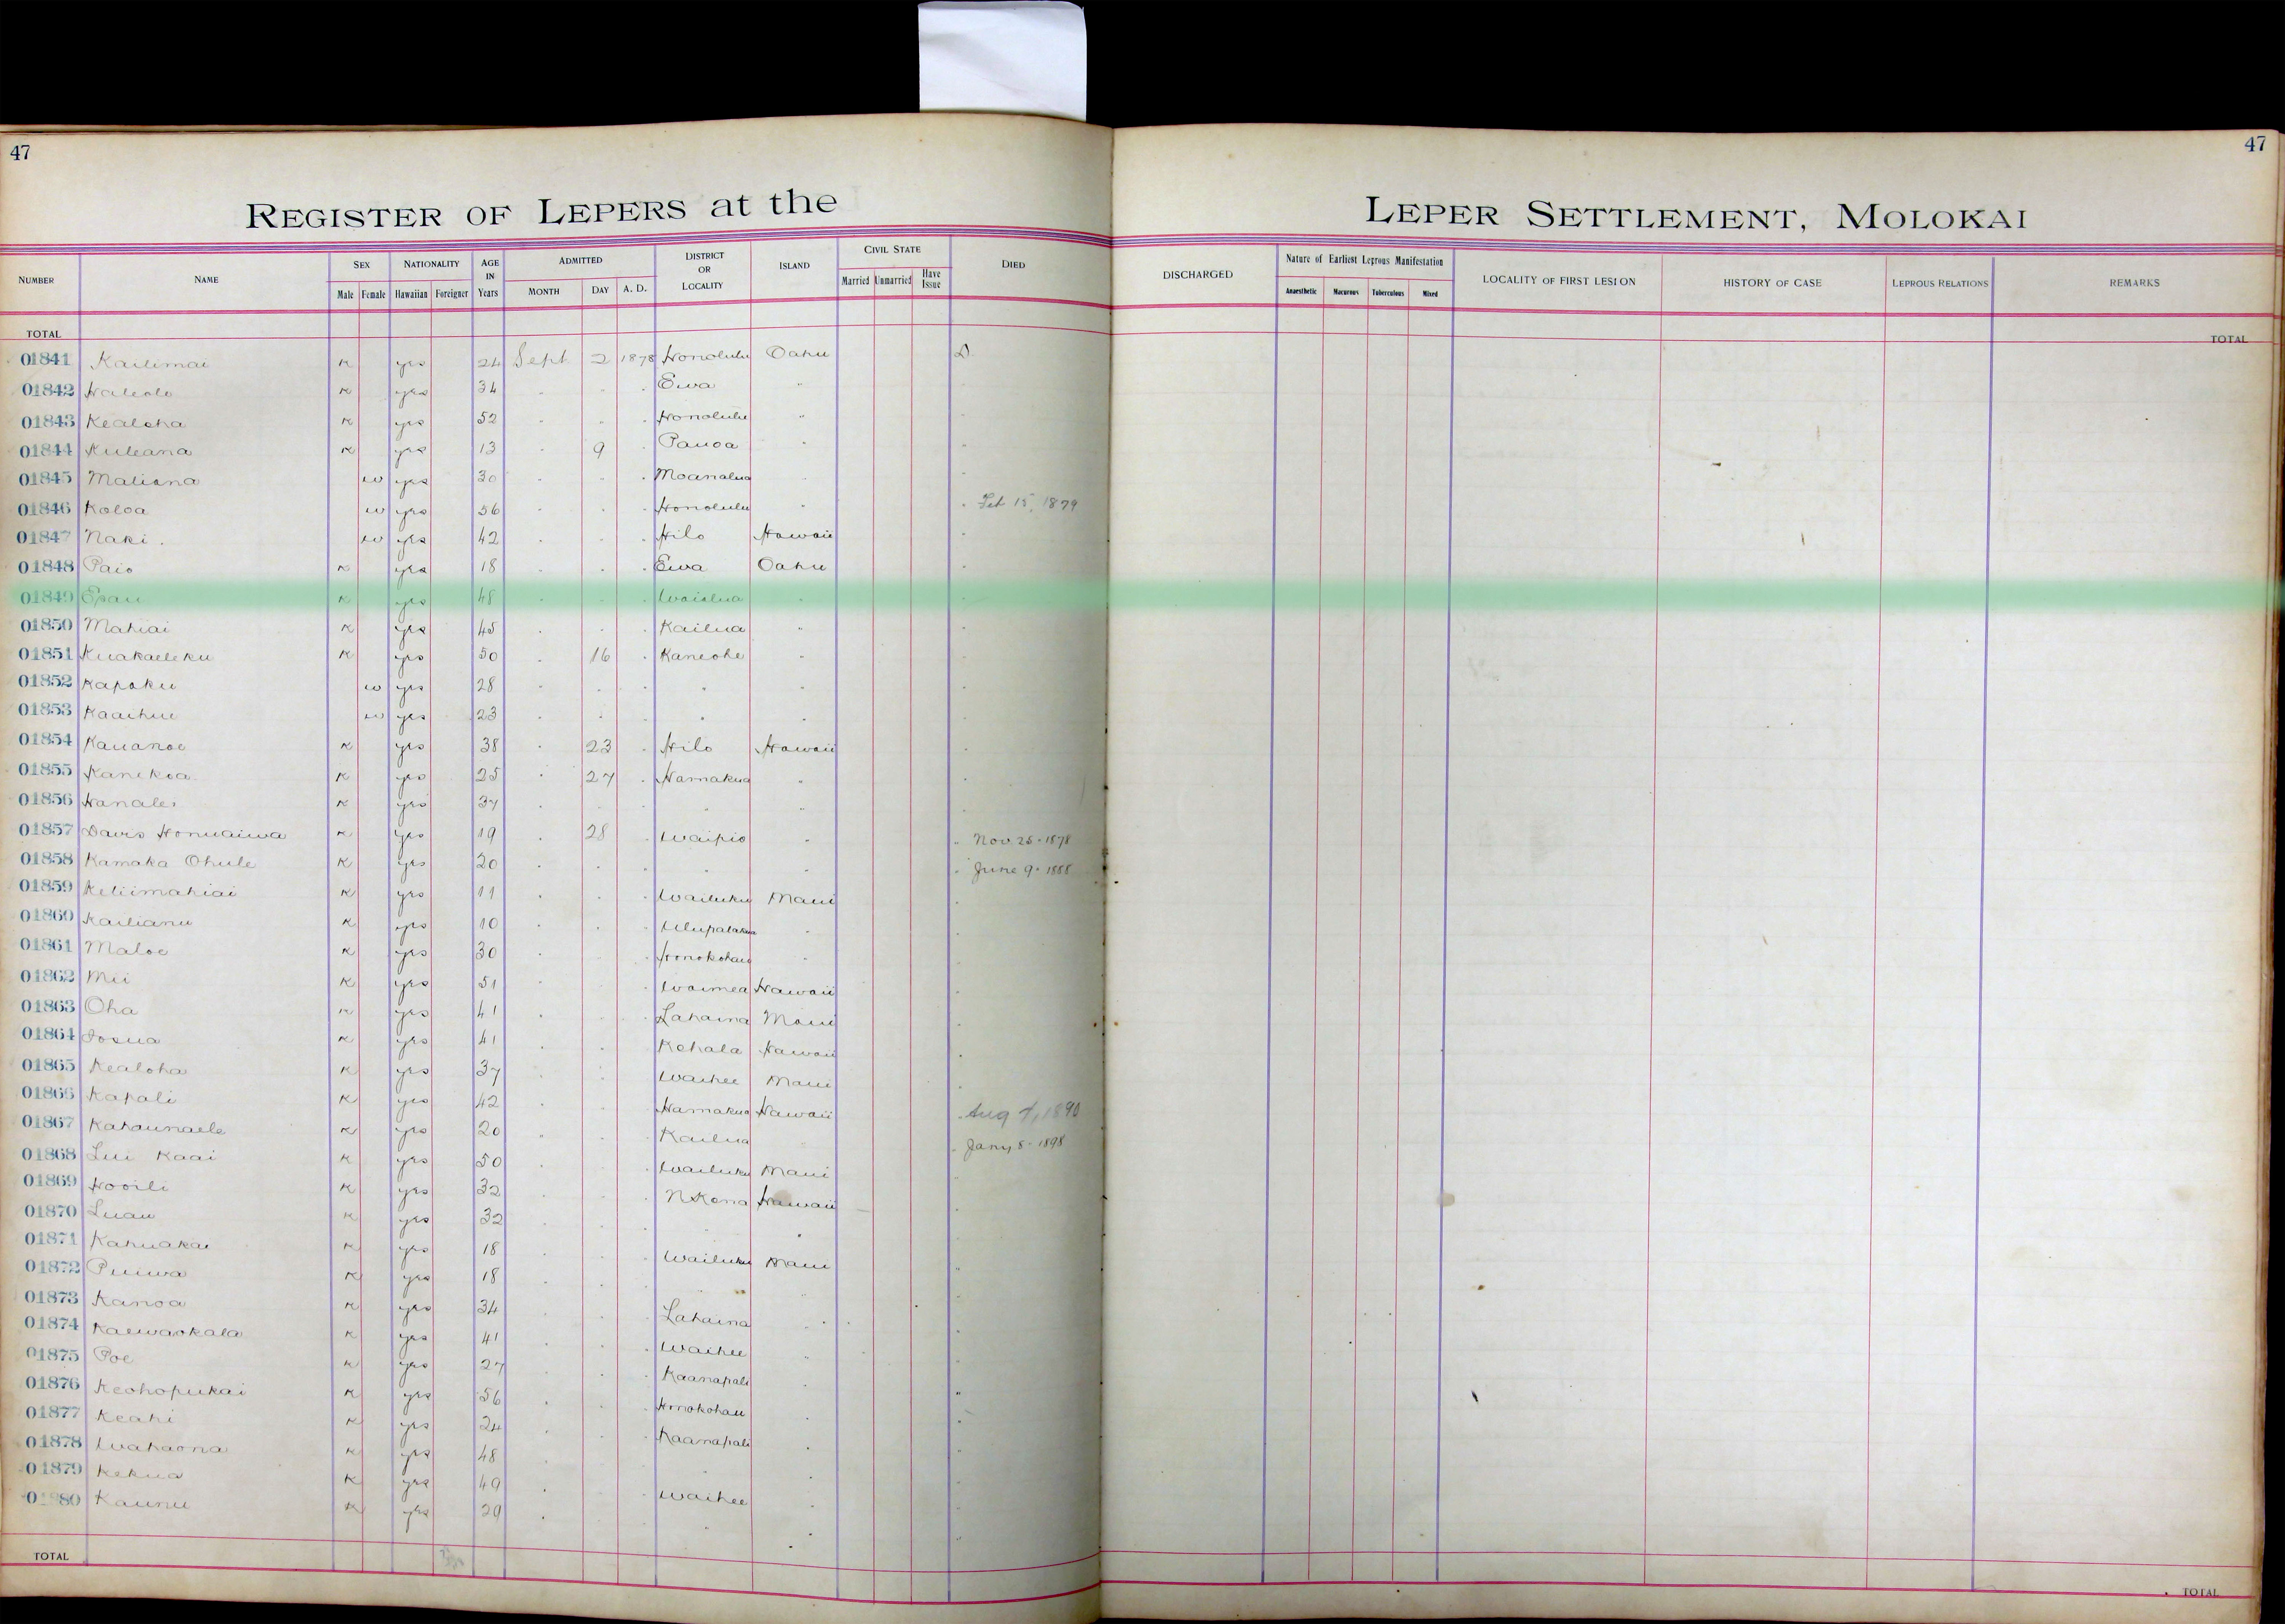 47
47
REGISTER OF LEPERS at the LEPER SETTLEMENT, MOLOKAI
NUMBER NAME SEX NATIONALITY AGE IN Years ADMITTED DISTRICT OR LOCALITY ISLAND CIVIL STATE DIED DISCHARGED Nature of Earliest Leprous Manifestation LOCALITY OF FIRST LESION HISTORY OF CASE LEPROUS RELATIONS REMARKS
Male Female Hawaiian Foreigner MONTH DAY A. D. Married Unmarried Have Issue Anaesthetic Macurous Tuberculous Mixed
TOTAL TOTAL
01841 Kailimai K yes 24 Sept 2 1878 Honolulu Oahu D
01842 Haleolo K yes 34 " " " Ewa "
01843 Kealoha K yes 52 " " " Honolulu "
01844 Kuleana K yes 13 " 9 " Pauoa " "
01845 Maliana w yes 30 " " " Moanalua " "
01846 Koloa w yes 56 " " " Honolulu " " Feb 15, 1879
01847 Naki w yes 42 " " " Hilo Hawaii "
01848 Paio K yes 18 " " " Ewa Oahu "
01849 Epau K yes 48 " " " Waialua " "
01850 Mahiai K yes 45 " " " Kailua " "
01851 Kuakaeleku K yes 50 " 16 " Kaneohe " "
01852 Kapoku w yes 28 " " " " " "
01853 Kaaihue w yes 23 " " " " " "
01854 Kauanoe K yes 38 " 23 " Hilo Hawaii "
01855 Kanekoa K yes 25 " 27 " Hamakua " "
01856 Hanalei K yes 37 " " " " " "
01857 Davis Honuaiwa K yes 19 " 28 " Waipio " " Nov 25 - 1878
01858 Kamaka Ohule K yes 20 " " " " " " June 9 - 1888
01859 Keliimahiai K yes 11 " " " Wailuku Maui "
01860 Kailianu K yes 10 " " " Ulupalakua " "
01861 Maloe K yes 30 " " " Honokohau " "
01862 Mii K yes 51 " " " Waimea Hawaii "
01863 Oha K yes 41 " " " Lahaina Maui "
01864 Iosua K yes 41 " " " Kohala Hawaii "
01865 Kealoha K yes 37 " " " Waihee Maui "
01866 Kapali K yes 42 " " " Hamakua Hawaii " Aug 7, 1890
01867 Kahaunaele K yes 20 " " " Kailua " " Jany 8 - 1898
01868 Lui Kaai K yes 50 " " " Wailuku Maui "
01869 Hooili K yes 32 " " " N Kona Hawaii "
01870 Luau K yes 32 " " " " " "
01871 Kahuakai K yes 18 " " " Wailuku Maui "
01872 Puiwa K yes 18 " " " " " "
01873 Kanoa K yes 34 " " " Lahaina " "
01874 Kaewaokala K yes 41 " " " Waihee " "
01875 Poe K yes 27 " " " Kaanapali " "
01876 Keohopukai K yes 56 " " " Honokohau " "
01877 Keahi K yes 24 " " " Kaanapali " "
01878 Wahaona K yes 48 " " " " " "
01879 Kekua K yes 49 " " " Waihee " "
0 880 Kaunu K yes 29 " " " " " "
TOTAL TOTAL